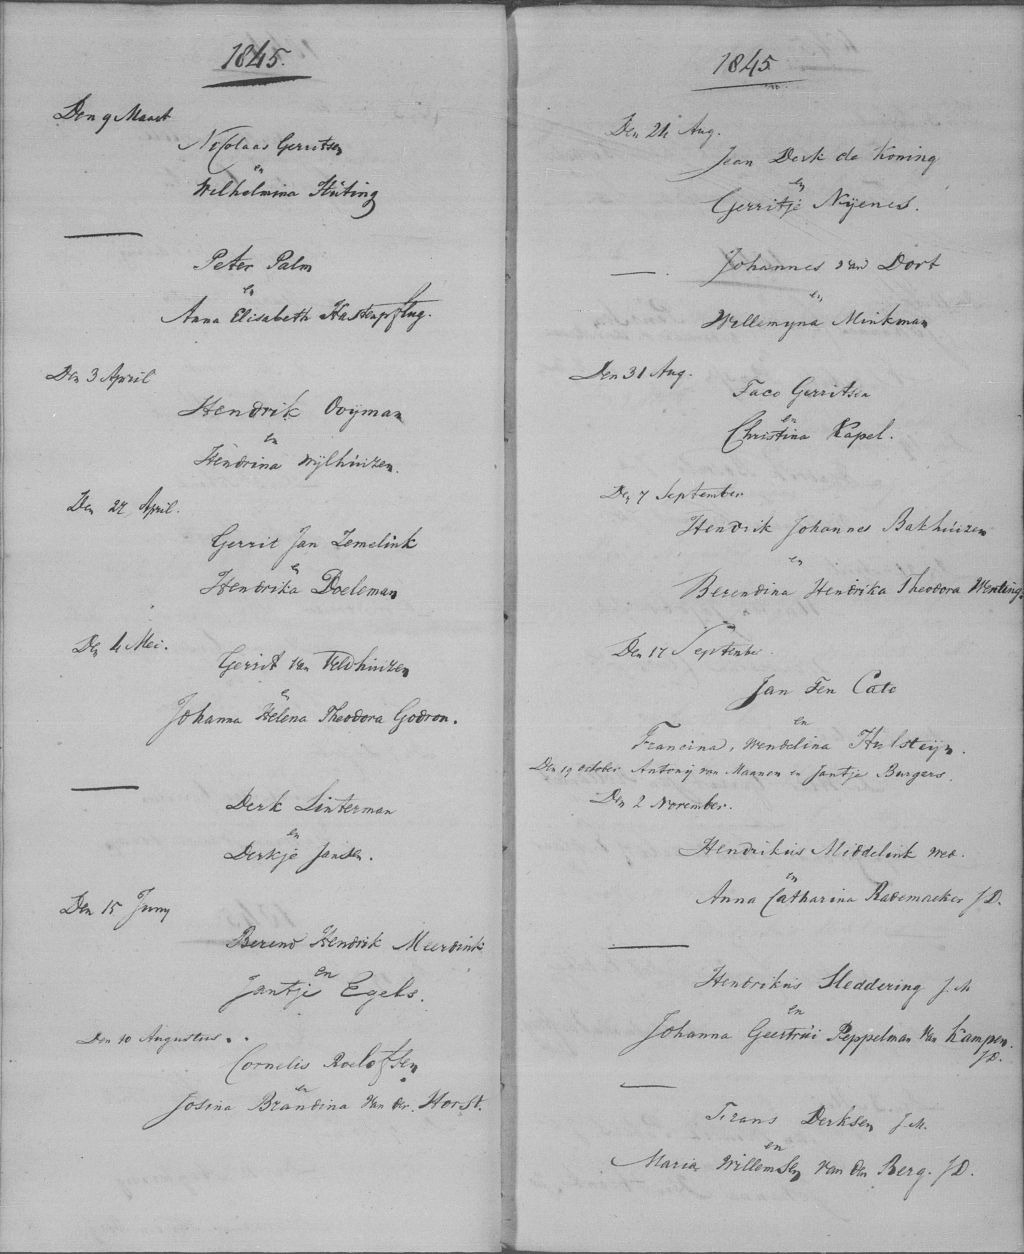 1845.
Den 9 Maart
Nicolaas Gerritsen
en
Wilhelmina Hüting
Peter Palm
en
Anna Elisabeth Hastenpflug.
Den 3 April
Hendrik Ooijman
en
Hendrina Wijlhuizen.
Den 27 April.
Gerrit Jan Zemelink
en
Hendrika Doeleman
Den 4 Mei.
Gerrit van Veldhuizen
en
Johanna Helena Theodora Godron.
Derk Linterman
en
Derkje Jansen.
Den 15 Juny
Berend Hendrik Meerdink
en
Jantje Egels.
Den 10 Augustus.
Cornelis Roelofsen
en
Josina Brandina van der Horst.
1845
Den 24 Aug.
Jean Derk de Koning
en
Gerritje Nijenes.
Johannes van Dort
en
Willemyna Minkman
Den 31 Aug.
Taco Gerritsen
en
Christina Kapel.
Den 7 September
Hendrik Johannes Bakhuizen
en
Berendina Hendrika Theodora Wenting.
Den 17 September.
Jan Ten Cate
en
Francina, Wendelina Hulsteijn.
Den 19 october Antonij van Maanen en Jantje Burgers.
Den 2 November.
Hendrikus Middelink wed.
en
Anna Catharina Rademaeker J.D.
Hendrikus Sleddering J.M
en
Johanna Geertrui Peppelman van Kampen.
J.D.
Frans Derksen J.M.
en
Maria Willemsen van den Berg. J.D.